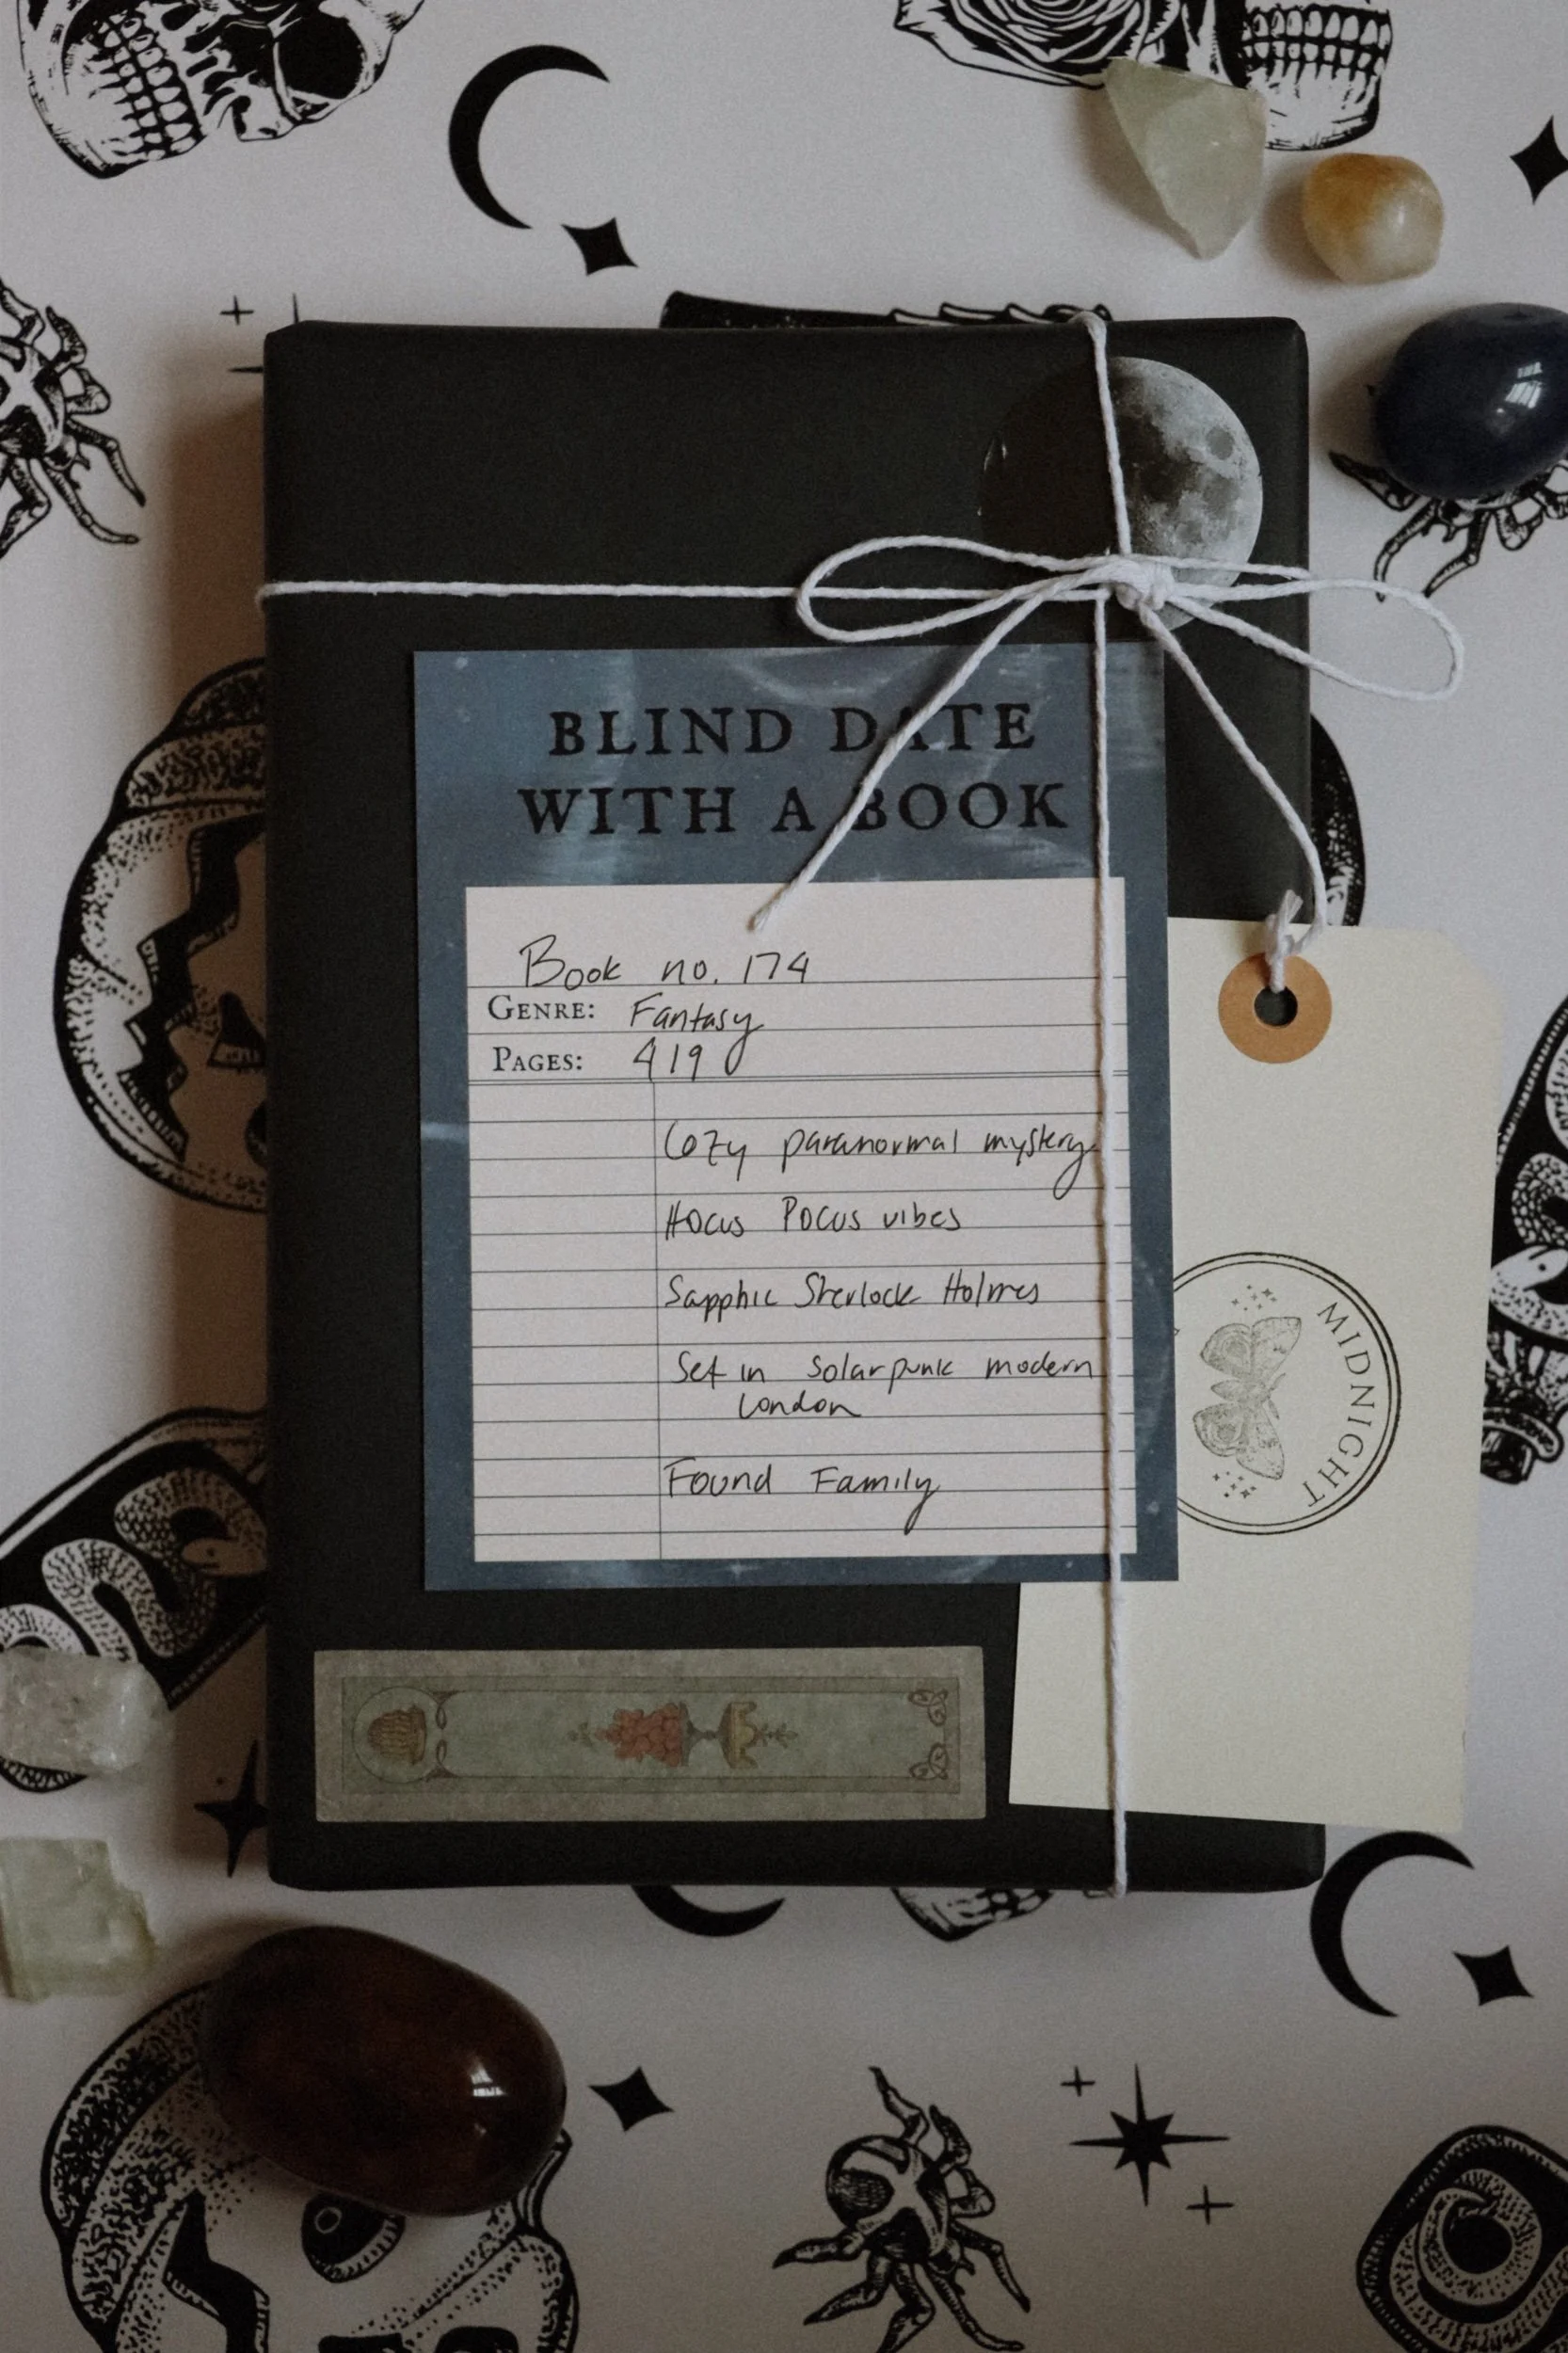 BLIND DATE
WITH A BOOK
Book no. 174
GENRE: Fantasy
PAGES: 419
Cozy paranormal mystery
Hocus Pocus vibes
Sapphic Sherlock Holmes
Set in Solarpunk modern
London
Found Family
MIDNIGHT